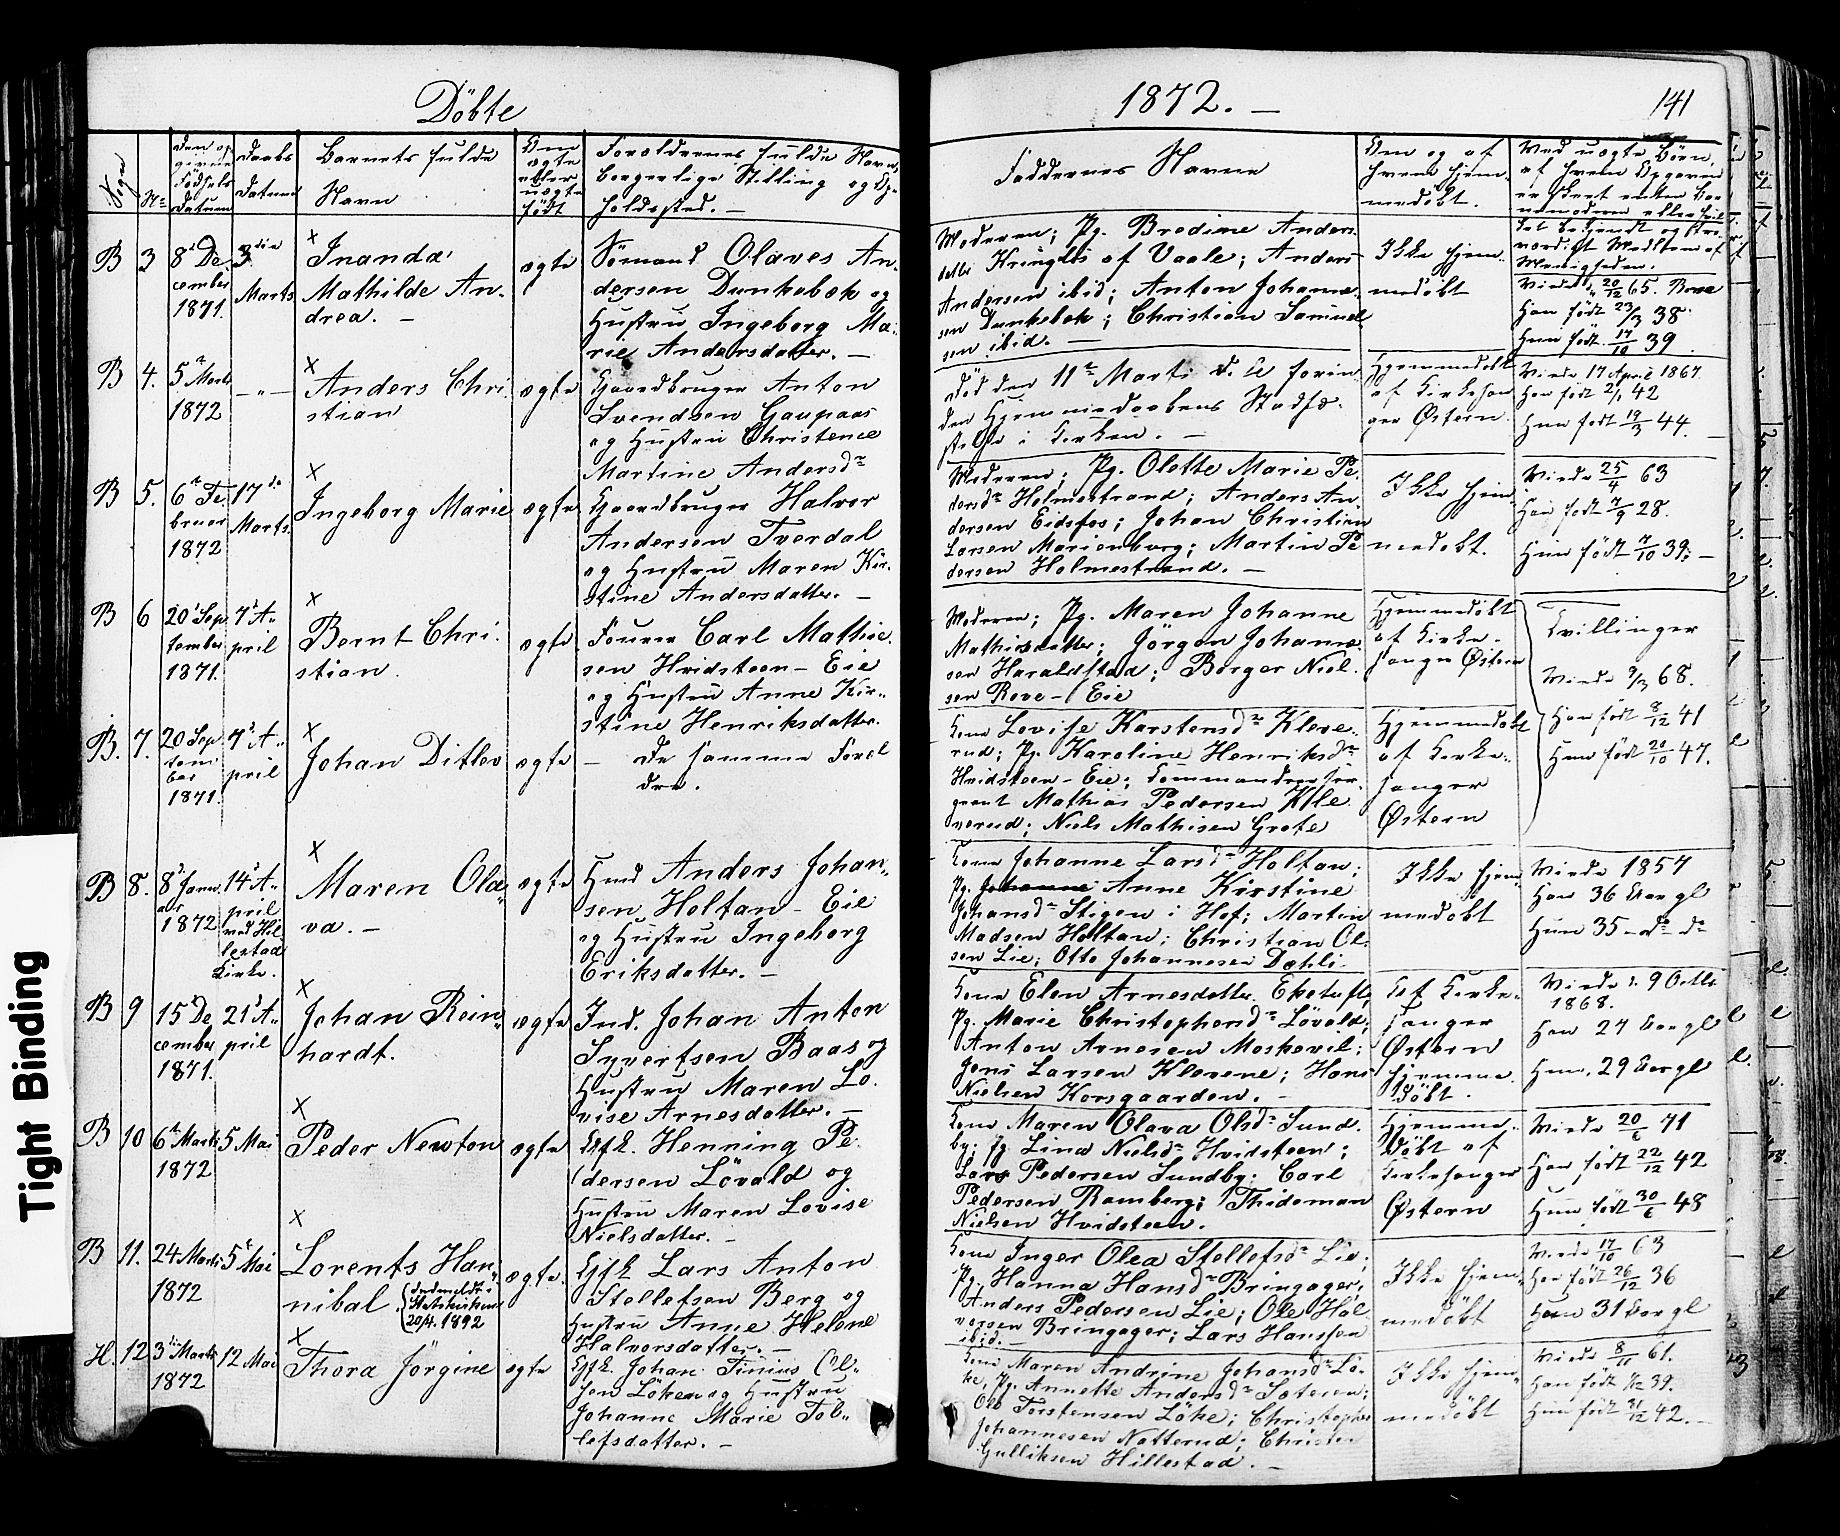 Döbte
1872. —
141
Sogn
No
Den op-
givne
Födsels
Datum
Daabs
Datum
Barnets fulde
Navn
Om
ægte
eller
uægte
født
Forældrenes fulde Navn,
borgerlige Stilling og Op-
holdssted. —
Faddernes Navne
Om og af
hvem hjem-
medøbt.
Ved uægte Børn,
af hvem Opgaven
er skeet enten
B 3 8de De-
cember
1871.
3die
Marts
×
Inanda
Mathilde An-
drea. —
ægte
Sömand Olaves An-
dersen Dunkebek og
Hustru Ingeborg Ma-
rie Andersdatter. —
Moderen; Pg. Bredine Anders
datter Kringlis af Vaale; Anders
Andersen ibid; Anton Johanne-
sen Dunkebek; Christian Samuel
sen ibid. —
Ikke hjem-
medøbt
Menigheden.
Viede 20/12 65.
Han født 23/3 38
Hun født 17/10 39
B 4. 5te Marts
1872
— " —
×
Anders Chri-
stian
ægte
Gaardbruger Anton
Svendsen Gaupaas
og Hustru Christence
Martine Andersdr
død den 11te Marts d. A. foren-
den Hjemmedaabens Stadfæ-
stelse i Kirken. —
Hjemmedøbt
af Kirkesan-
ger Östern
Viede 17 April 1867
Han født 2/1 42
Hun født 19/3 44. —
B 5. 6te Fe-
bruar
1872
17de
Marts.
×
Ingeborg Marie
ægte
Gaardbruger Halvor
Andersen Tverdal
og Hustru Maren Kir-
stine Andersdatter. —
Moderen; Pg. Olette Marie Pe-
dersdr Holmestrand; Anders An-
dersen Eidsfos; Johan Christian
Larsen Marienborg; Martin Pe
dersen Holmestrand. —
Ikke hjem-
medøbt.
Viede 25/4 63
Han født 7/9 28.
Hun født 7/10 39. —
B 6 20de Sep
tember
1871.
7de A-
pril
×
Bernt Chri-
stian.
ægte
Fourer Carl Mathie-
sen Hvidsteen-Eie
og Hustru Anne Kir-
stine Henriksdatter.
Moderen; Pg. Maren Johanne
Mathisdatter; Jörgen Johanne-
sen Haraldstad; Borger Niel-
sen Rove-Eie
Hjemmedøbt
af Kirke-
sanger Östern
Tvillinger
Viede 9/3 68.
Han født 8/12 41
Hun født 20/10 47.
B. 7. 20 Sep
tem
ber
1871.
7de A-
pril
×
Johan Ditlev
ægte
— De samme Foræl
dre.
Kone Lovise Karstensdr Kleve-
rud; Pg. Karoline Henriksdr
Hvidsteen-Eie; Commandeerser-
geant Mathias Pedersen Kle
verud; Niels Mathisen Grote
Hjemmedøbt
af Kirke-
sanger
Östern
B 8. 8de Janu-
ar
1872
14de A-
pril
ved Hil-
lestad
Kirke.
×
Maren Ola-
va. —
ægte
Hmd Anders Johan-
sen Holtan-Eie
og Hustru Ingeborg
Eriksdatter. —
Kone Johanne Larsdr Holtan;
Pg. Johanne Anne Kirstine
Johansdr Stigen i Hof; Martin
Madsen Holtan; Christian Ol-
sen Lie; Otto Johannesen Dahli
Ikke hjem-
medøbt
Viede 1857
Han 36 Aar gl
Hun 35 — do do
B 9 15de De
cember
1871.
21de A-
pril
×
Johan Rein-
hardt.
ægte
Ind. Johan Anton
Syvertsen Baas og
Hustru Maren Lo-
vise Arnesdatter. —
Kone Elen Arnesdatter
Pg. Marie Christophersdr Lövald;
Anton Arnesen Moskevil;
Jens Larsen Klevene; Hans
Nielsen Korsgaarden. —
af Kirke-
sanger
Östern
hjemme-
døbt.
Viede 9 Octbr
1868.
Han 27 Aar gl
Hun 29 Aar gl
B 10 6te Marts
1872
5 Mai
×
Peder Newton
ægte
Gjfk. Henning Pe-
dersen Lövald og
Hustru Maren Lovise
Nielsdatter. —
Kone Maren Olava Olsdr Sund-
by; Pg. Lina Nielsdr Hvidsteen;
Lars Pedersen Sundby; Carl
Pedersen Ramberg; Thideman
Nielsen Hvidsteen.
Hjemme-
døbt af
Kirkesanger
Östern
Viede 20/6 71
Han født 22/12 42
Hun født 30/6 48
B 11. 24 Marts
1872
5te Mai
×
Lorents Han-
nibal.
(Indmeldt i
Statskirken
20/4. 1892
ægte.
Gjfk Lars Anton
Stellefsen Berg og
Hustru Anne Helene
Halvorsdatter. —
Kone Inger Olea Stellefsdr Lie;
Pg. Hanna Hansdr Bringager;
Anders Pedersen Lie; Ole Hal-
vorsen Bringager; Lars Hanssen
ibid.
Ikke hjem-
medøbt
Viede 17/10 63
Han født 26/12 36
Hun 31 Aar gl
H. 12 3die Marts
1872
12 Mai
×
Thora Jörgine
ægte
Gjfk. Johan Tinius Ol-
sen Löken og Hustru
Johanne Marie Tol-
lefsdatter. —
Kone Maren Andrine Johansdr Lö-
ke; Pg. Annette Andersdr Sateren;
Ole Torstensen Löke; Christopher
Johannesen Natterud; Christen
Gulliksen Hillestad. —
Ikke hjem-
medøbt
Viede 8/11 61.
Han født 39.
Hun født 31/12 42. —
Tight Binding